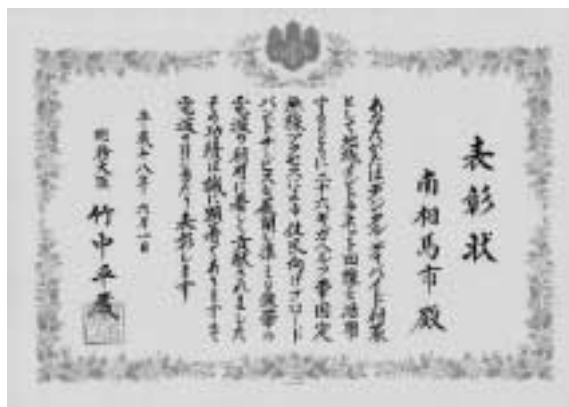 表彰状
南相馬市殿
あなたはデジタルデバイド対策
として地域イントラネット回線を活用
するとともに二十六ギガヘルツ帯固定
無線アクセスによる住民向けブロード
バンドサービスを展開し準ミリ波帯の
電波の利用に著しく貢献されました
その功績は誠に顕著でありますので
電波の日にあたり表彰します
平成十八年六月一日
総務大臣 竹中平蔵